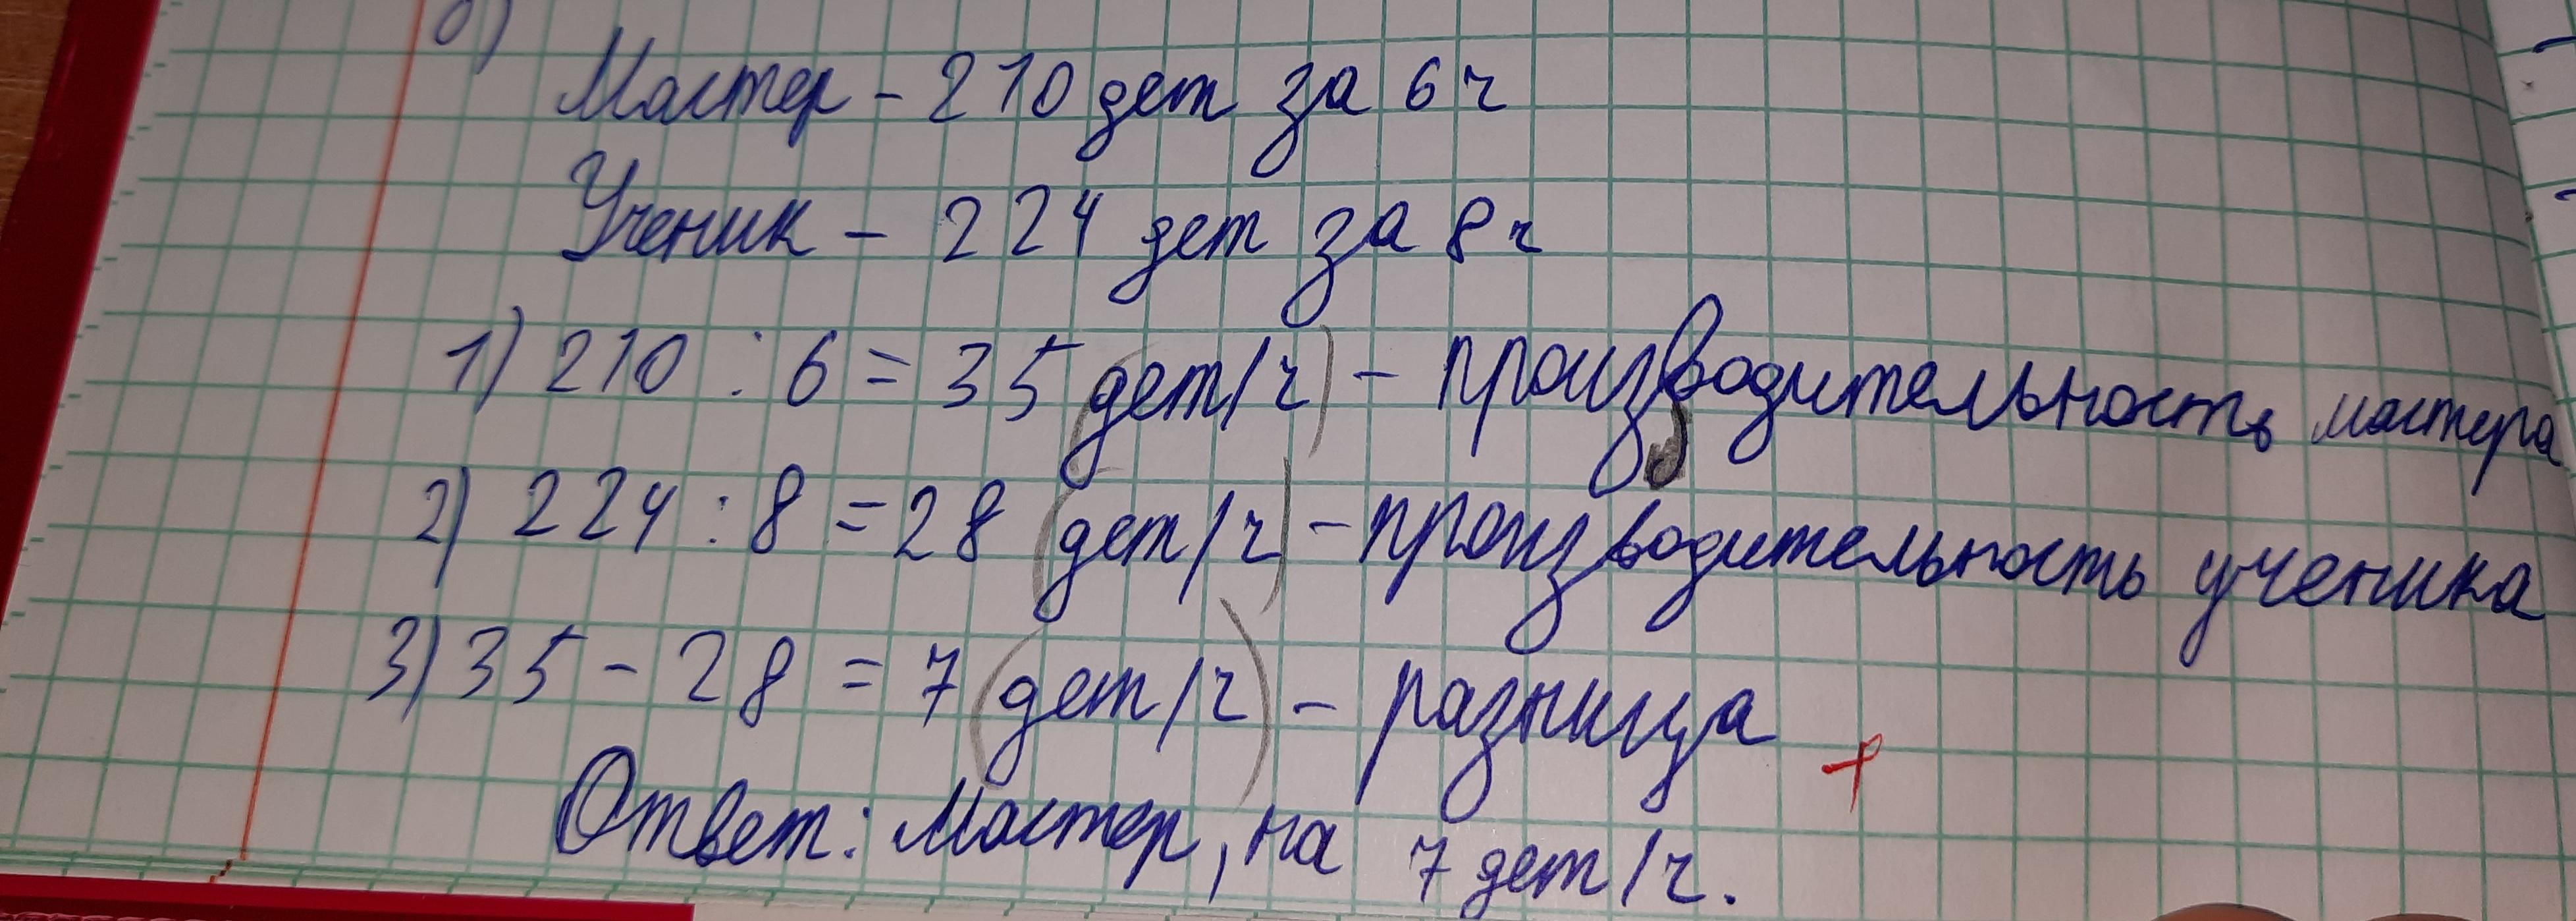 б)
Мастер - 210 дет за 6 ч
Ученик - 224 дет за 8 ч
1) 210 : 6 = 35 (дет/ч) - производительность мастера
2) 224 : 8 = 28 (дет/ч) - производительность ученика
3) 35 - 28 = 7 (дет/ч) - разница
+
Ответ: Мастер, на 7 дет/ч.